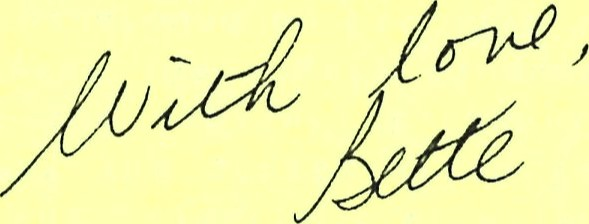 With love,
Bette